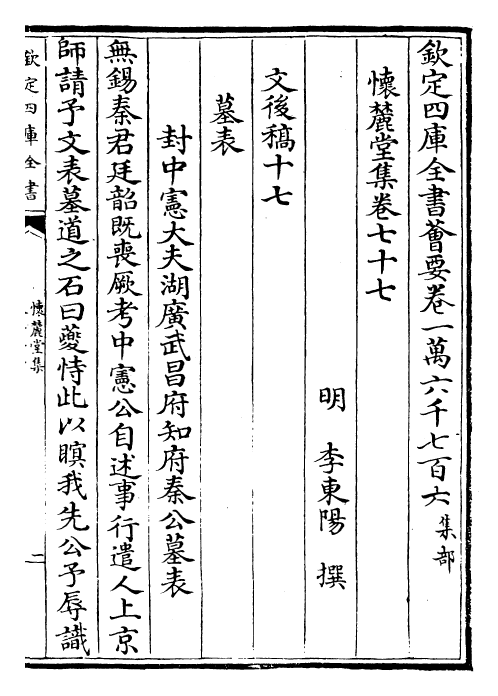 欽定四庫全書薈要卷一萬六千七百六 集部
懷麓堂集卷七十七
明 李東陽 撰
文後稿十七
墓表
封中憲大夫湖廣武昌府知府秦公墓表
無錫秦君廷韶既喪厥考中憲公自述事行遣人上京
師請予文表墓道之石曰夔恃此以瞑我先公予辱識
欽定四庫全書
懷麓堂集